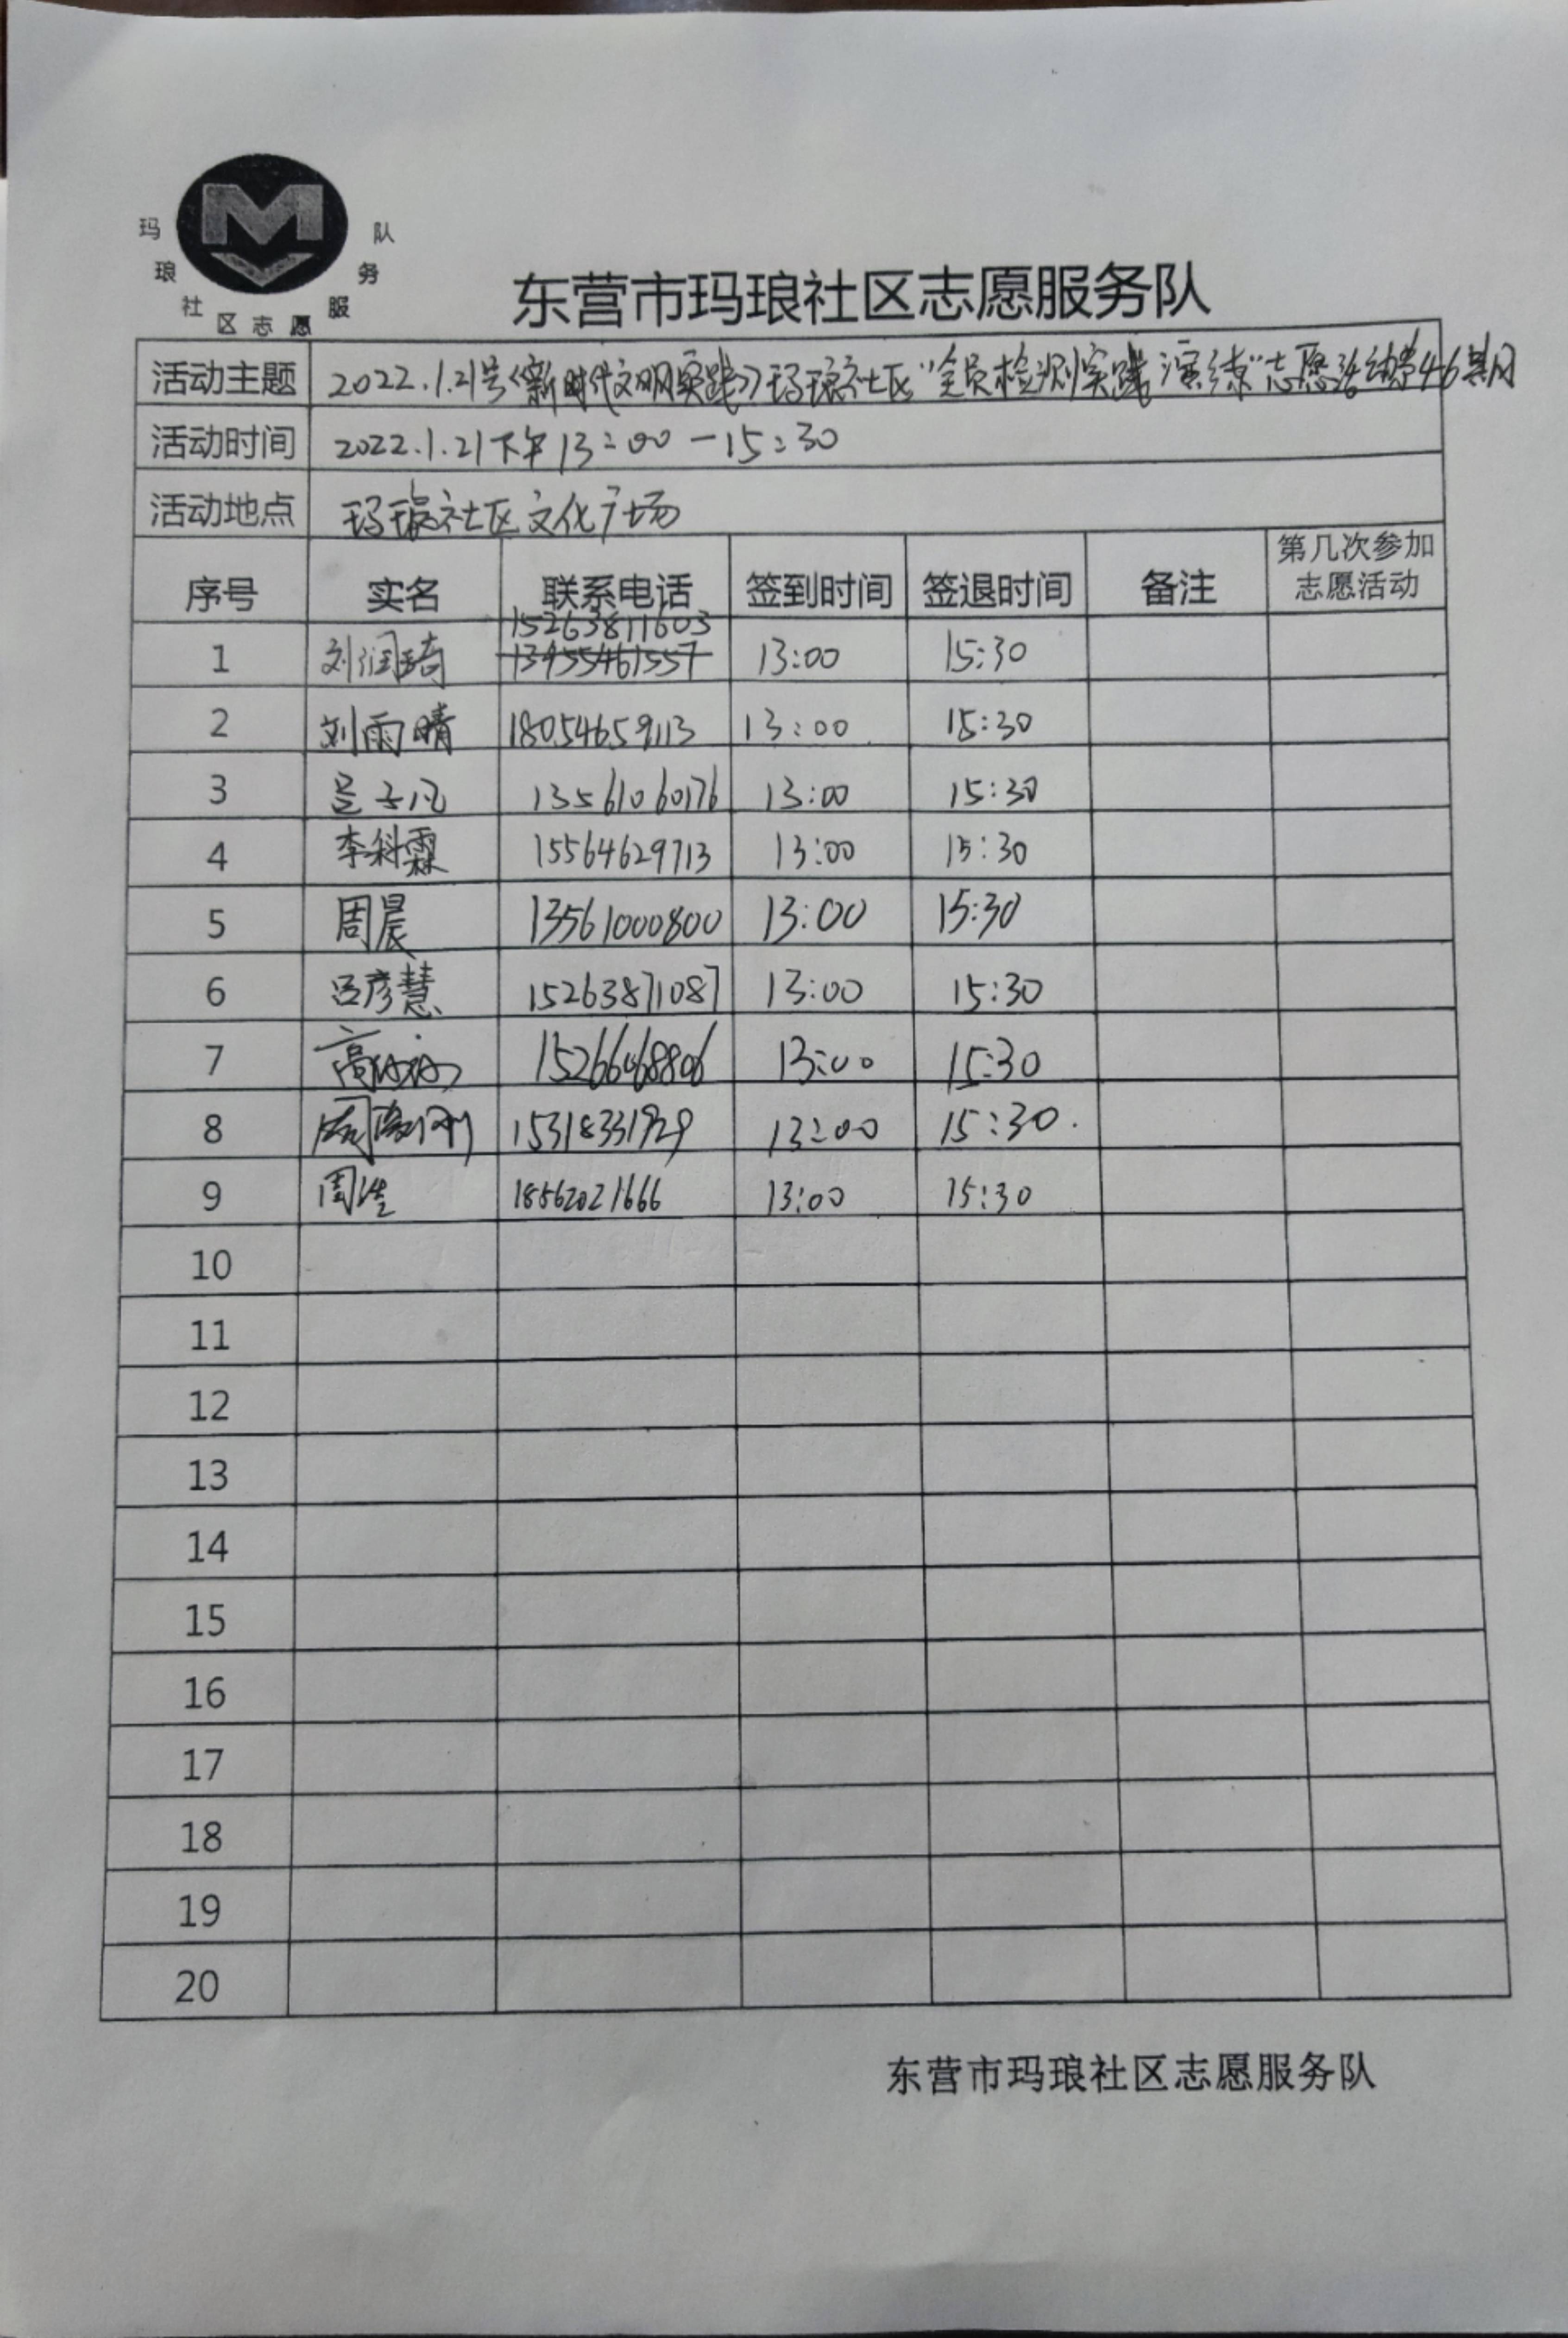 M
玛琅社区志愿服务队
东营市玛琅社区志愿服务队
活动主题 2022.1.21号《新时代文明实践》玛琅社区“全员检测实践演练”志愿活动第46期
活动时间 2022.1.21下午13:00-15:30
活动地点 玛琅社区文化广场
序号 实名 联系电话 签到时间 签退时间 备注 第几次参加志愿活动
15263811603
1 刘润琦 13455461557 13:00 15:30
2 刘雨晴 18054659113 13:00 15:30
3 吕子凡 13561060176 13:00 15:30
4 李科霖 15564629713 13:00 15:30
5 周晨 13561000800 13:00 15:30
6 吕彦慧 15263871087 13:00 15:30
7 高 13:00 15:30
8 周 15318331929 13:00 15:30
9 周 18562021666 13:00 15:30
10
11
12
13
14
15
16
17
18
19
20
东营市玛琅社区志愿服务队